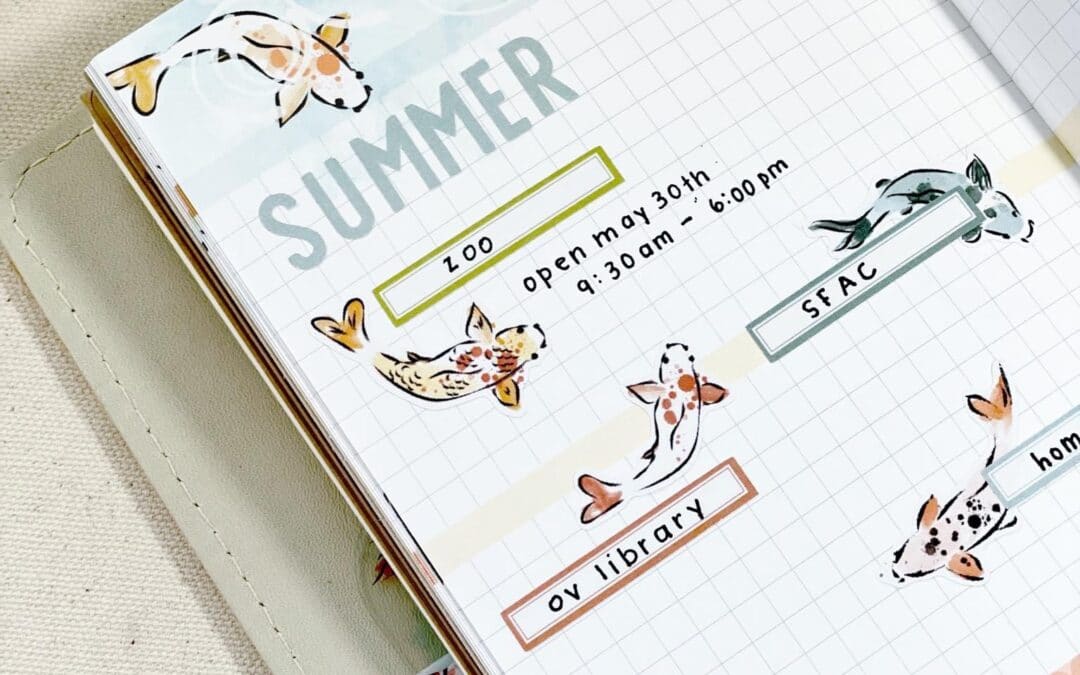 SUMMER
zoo
open may 30th
9:30am - 6:00pm
SFAC
ov library
hom